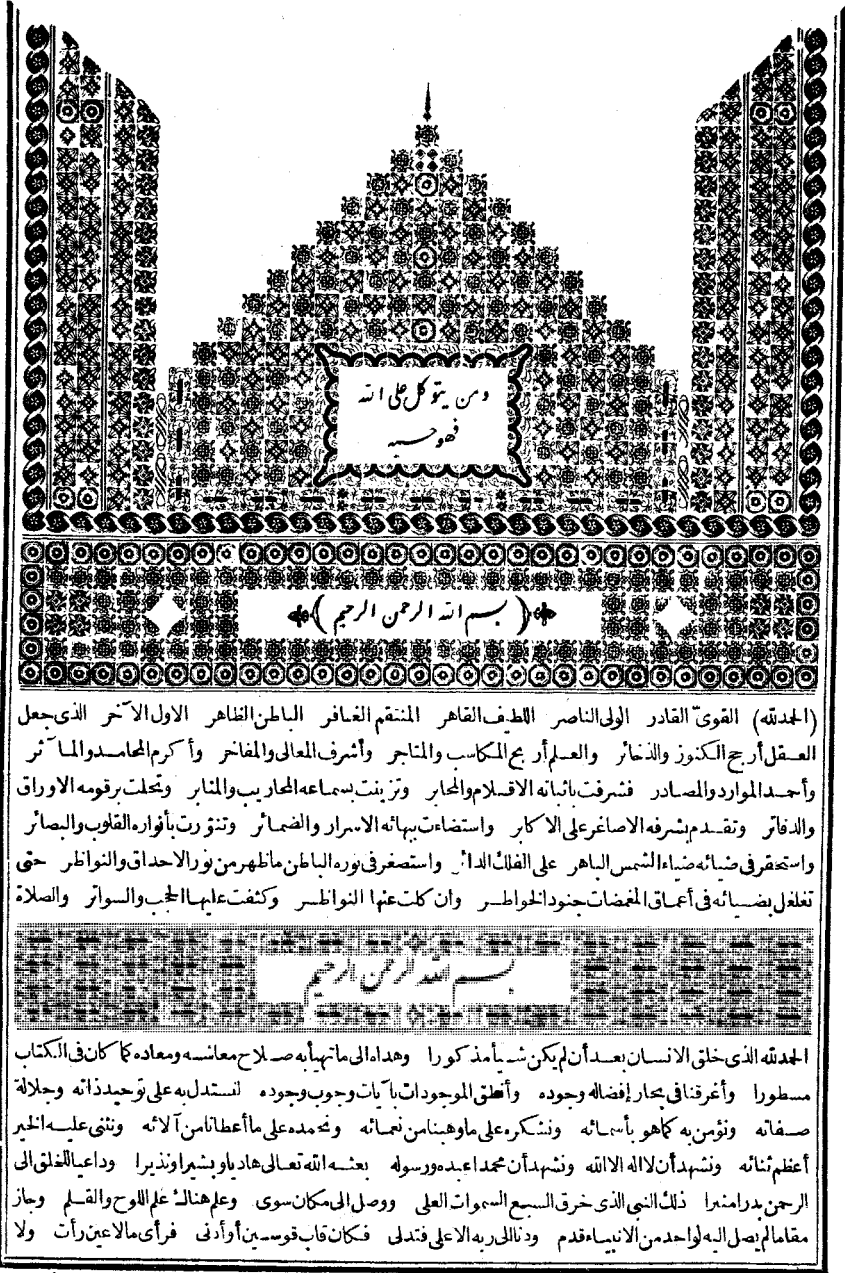 ومن يتوكل على الله
فهو حسبه
(بسم الله الرحمن الرحيم)
(الحمدلله) القوى القادر الولى الناصر اللطيف القاهر المنتقم الغافر الباطن الظاهر الاول الآخر الذى جعل
العقل أرجح الكنوز والذخائر والعلم أربح المكاسب والمتاجر وأشرف المعالى والمفاخر وأكرم المحامد والمآثر
وأحمد الموارد والمصادر فشرفت باثباته الاقلام والمحابر وتزينت بسماعه المحاريب والمنابر وتحلت برقومه الاوراق
والدفاتر وتقدم بشرفه الاصاغر على الاكابر واستضاءت ببهائه الاسرار والضمائر وتنورت بأنواره القلوب والبصائر
واستحقر فى ضيائه ضياء الشمس الباهر على الفلك الدائر واستصغر فى نوره الباطن ما ظهر من نور الاحداق والنواظر حتى
تغلغل بضيائه فى أعماق المغمضات جنود الخواطر وان كلت عنها النواظر وكثفت عليها الحجب والسواتر والصلاة
بسم الله الرحمن الرحيم
الحمدلله الذى خلق الانسان بعد أن لم يكن شيأ مذكورا وهداه الى ما تهيأ به صلاح معاشه ومعاده كما كان فى الكتاب
مسطورا وأغرقنا فى بحار إفضاله وجوده وأنطق الموجودات بآيات وجوب وجوده لنستدل به على توحيد ذاته وجلالة
صفاته ونؤمن به كما هو بأسمائه ونشكره على ما وهبنا من نعمائه ونحمده على ما أعطانا من آلائه ونثنى عليه الخير
أعظم ثنائه ونشهد أن لا اله الا الله ونشهد أن محمدا عبده ورسوله بعثه الله تعالى هاديا وبشيرا ونذيرا وداعيا للخلق الى
الرحمن بدرا منيرا ذلك النبى الذى خرق السبع السموات العلى ووصل الى مكان سوى وعلم هناك علم اللوح والقلم وجاز
مقاما لم يصل اليه لواحد من الانبياء قدم ودنا الى ربه الاعلى فتدلى فكان قاب قوسين أو أدنى فرأى ما لا عين رأت ولا